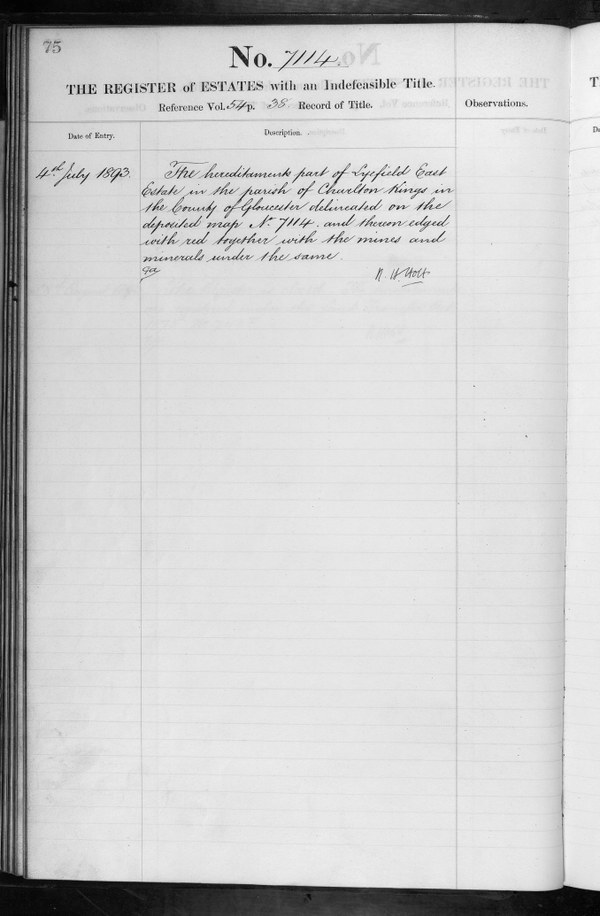 75
No. 7114.
THE REGISTER of ESTATES with an Indefeasible Title.
Reference Vol. 54 p. 38 Record of Title.
Observations.
Date of Entry.
Description.
4th July 1893.
The hereditaments part of Lyefield East
Estate in the parish of Charlton Kings in
the County of Gloucester delineated on the
deposited map No. 7114. and thereon edged
with red together with the mines and
minerals under the same.
R. H. Holt